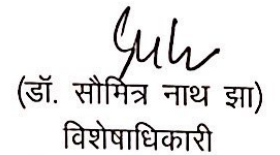 (डॉ. सौमित्र नाथ झा)
विशेषाधिकारी